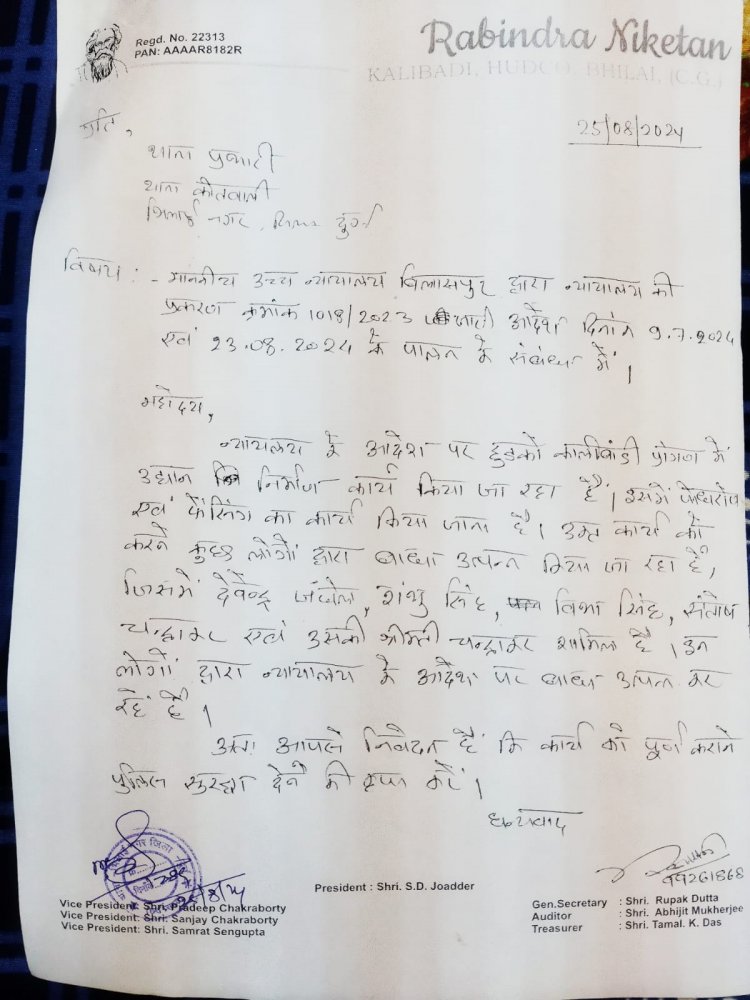 Regd. No. 22313
PAN: AAAAR8182R
Rabindra Niketan
KALIBADI, HUDCO, BHILAI, (C.G.)
25/08/2024
प्रति,
थाना प्रभारी
थाना कोतवाली
भिलाई नगर, जिला दुर्ग
विषय :- माननीय उच्च न्यायालय बिलासपुर द्वारा न्यायालय की
प्रकरण क्रमांक 1018/2023 जारी आदेश दिनांक 9.7.2024
एवं 23.08.2024 के पालन के संबंध में।
महोदय,
न्यायलय के आदेश पर हुडको कालीबाड़ी प्रांगण में
उद्यान निर्माण कार्य किया जा रहा है। इसमें पौधारोपण
एवं फेंसिंग का कार्य किया जाना है। उक्त कार्य को
करने कुछ लोगों द्वारा बाधा उत्पन्न किया जा रहा है,
जिसमें देवेन्द्र जंघेल, शंभु सिंह, विभा सिंह, संतोष
चन्द्राकर एवं उसकी श्रीमती चन्द्राकर शामिल है। इन
लोगों द्वारा न्यायालय के आदेश पर बाधा उत्पन्न कर
रहे हैं।
अतः आपसे निवेदन है कि कार्य को पूर्ण कराने
पुलिस सुरक्षा देने की कृपा करें।
धन्यवाद
25/8/24
President : Shri. S.D. Joadder
Vice President: Shri. Pradeep Chakraborty
Vice President: Shri. Sanjay Chakraborty
Vice President: Shri. Samrat Sengupta
Gen.Secretary : Shri. Rupak Dutta
Auditor : Shri. Abhijit Mukherjee
Treasurer : Shri. Tamal. K. Das